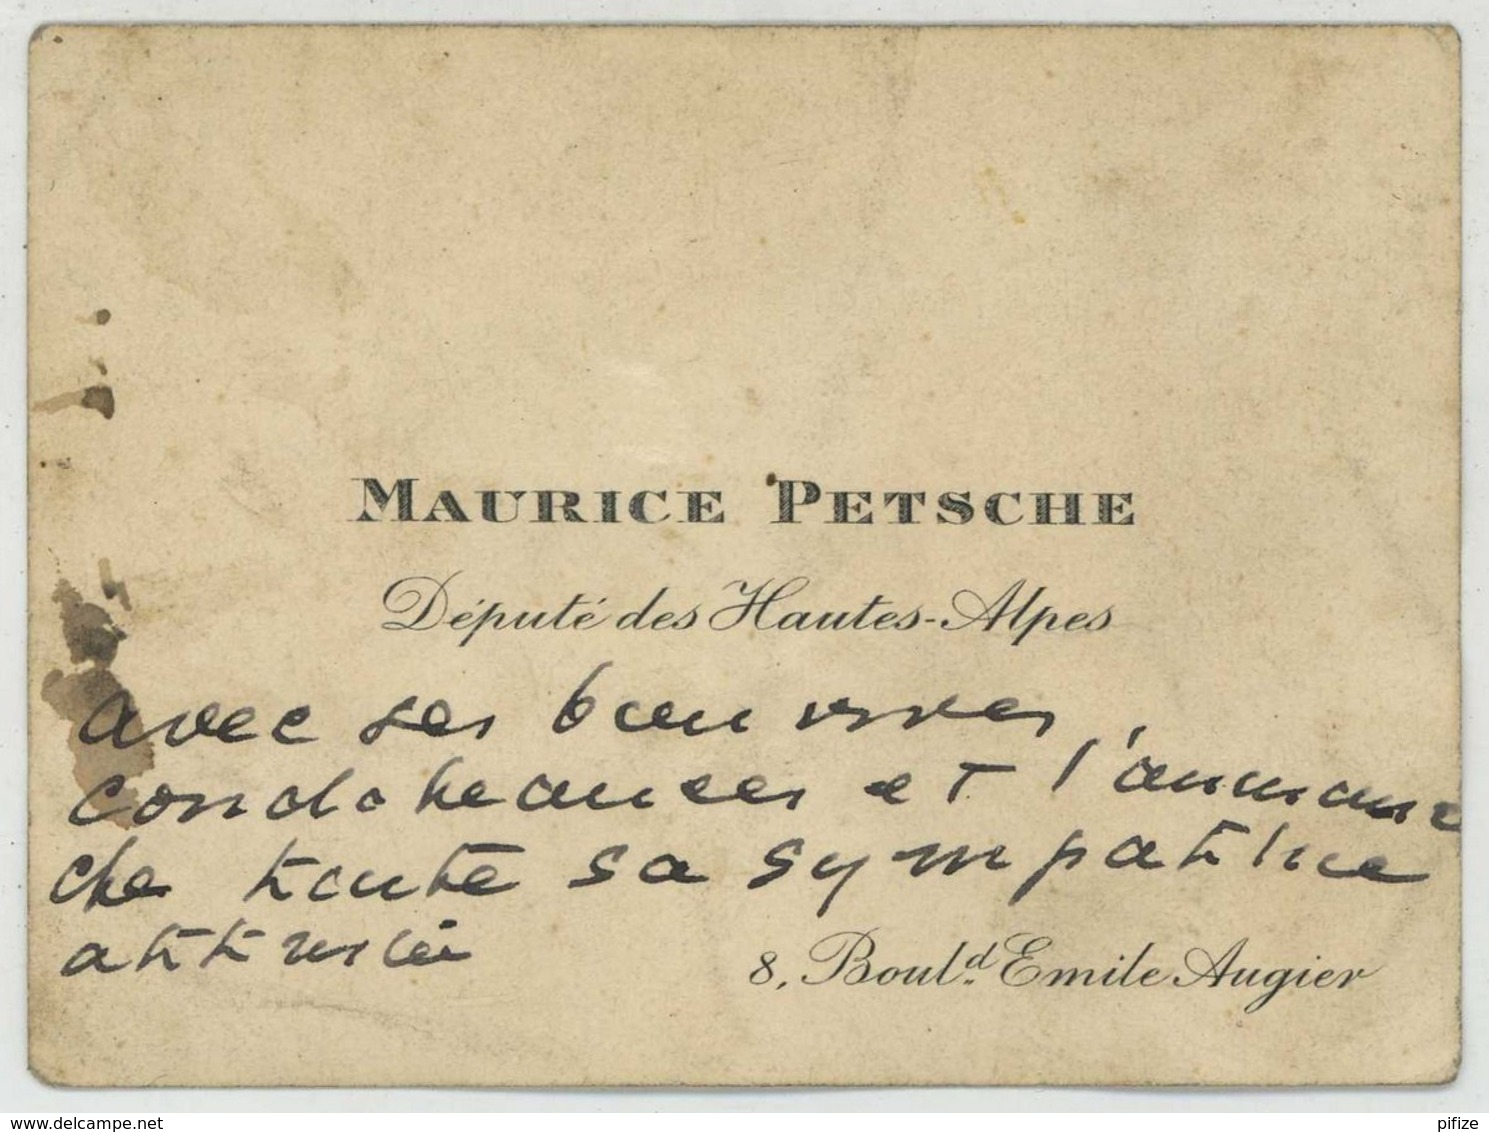 MAURICE PETSCHE
Député des Hautes-Alpes
avec ses bien vives
condoléances et l'assurance
de toute sa sympathie
attristée
8, Boul.d Emile Augier
www.delcampe.net
pifize